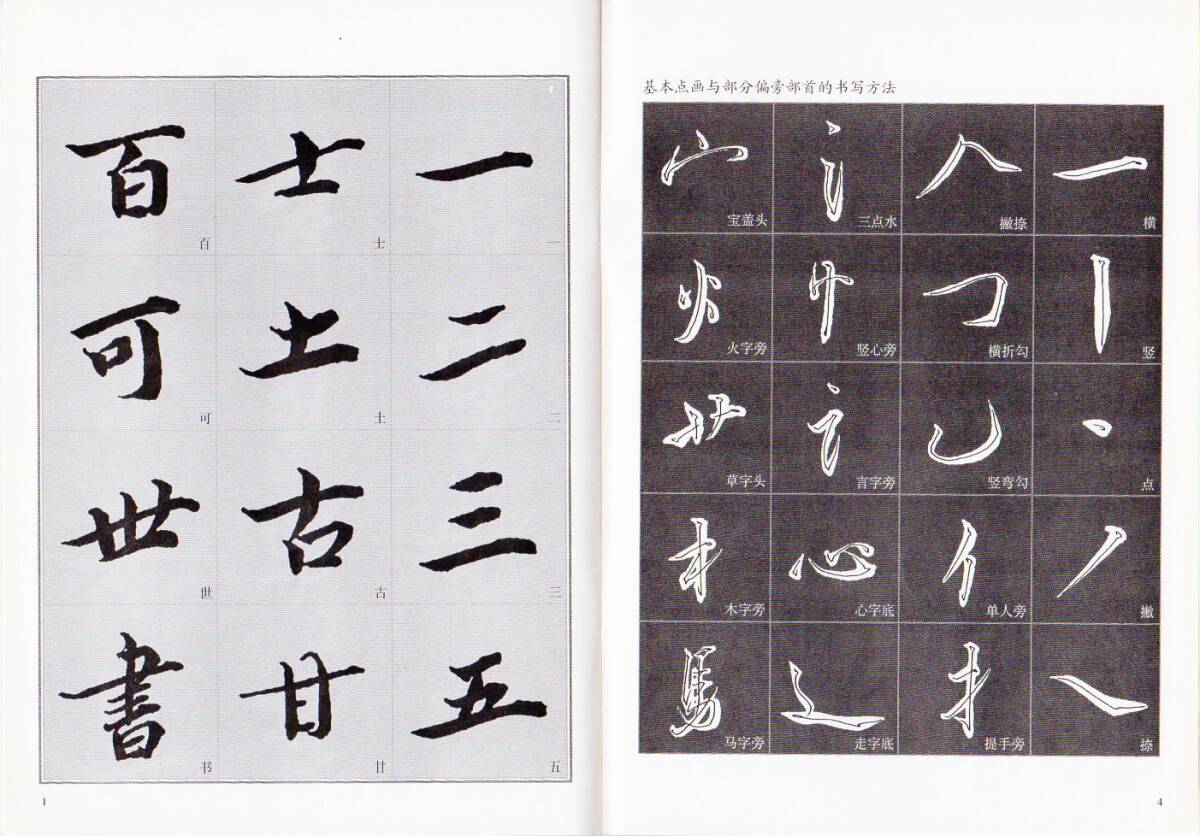 百 士 一
百 士 一
可 土 二
可 土 二
世 古 三
世 古 三
書 甘 五
书 甘 五
1
基本点画与部分偏旁部首的书写方法
宝盖头 三点水 撇捺 横
火字旁 竖心旁 横折勾 竖
草字头 言字旁 竖弯勾 点
木字旁 心字底 单人旁 撇
马字旁 走字底 提手旁 捺
4